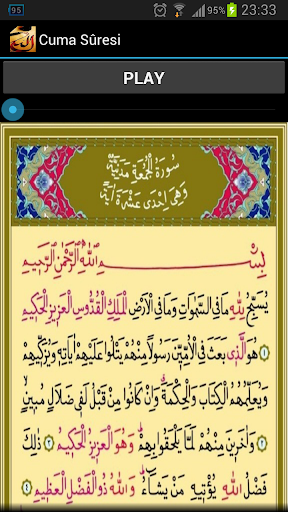 95
95%
23:33
Cuma Sûresi
PLAY
سُورَةُ الْجُمُعَةِ مَدَنِيَّةٌ
وَهِيَ اِحْدٰى عَشْرَةَ اٰيَةً
بِسْمِ اللّٰهِ الرَّحْمٰنِ الرَّحِيمِ
يُسَبِّحُ لِلّٰهِ مَا فِي السَّمٰوَاتِ وَمَا فِي الْاَرْضِ الْمَلِكِ الْقُدُّوسِ الْعَزِيزِ الْحَكِيمِ
﴿١﴾ هُوَ الَّذِي بَعَثَ فِي الْاُمِّيِّنَ رَسُولًا مِنْهُمْ يَتْلُوا عَلَيْهِمْ اٰيَاتِهِ وَيُزَكِّيهِمْ
وَيُعَلِّمُهُمُ الْكِتَابَ وَالْحِكْمَةَ وَاِنْ كَانُوا مِنْ قَبْلُ لَفِي ضَلَالٍ مُبِينٍ
﴿٢﴾ وَاٰخَرِينَ مِنْهُمْ لَمَّا يَلْحَقُوا بِهِمْ وَهُوَ الْعَزِيزُ الْحَكِيمُ ﴿٣﴾ ذٰلِكَ
فَضْلُ اللّٰهِ يُؤْتِيهِ مَنْ يَشَاءُ وَاللّٰهُ ذُو الْفَضْلِ الْعَظِيمِ